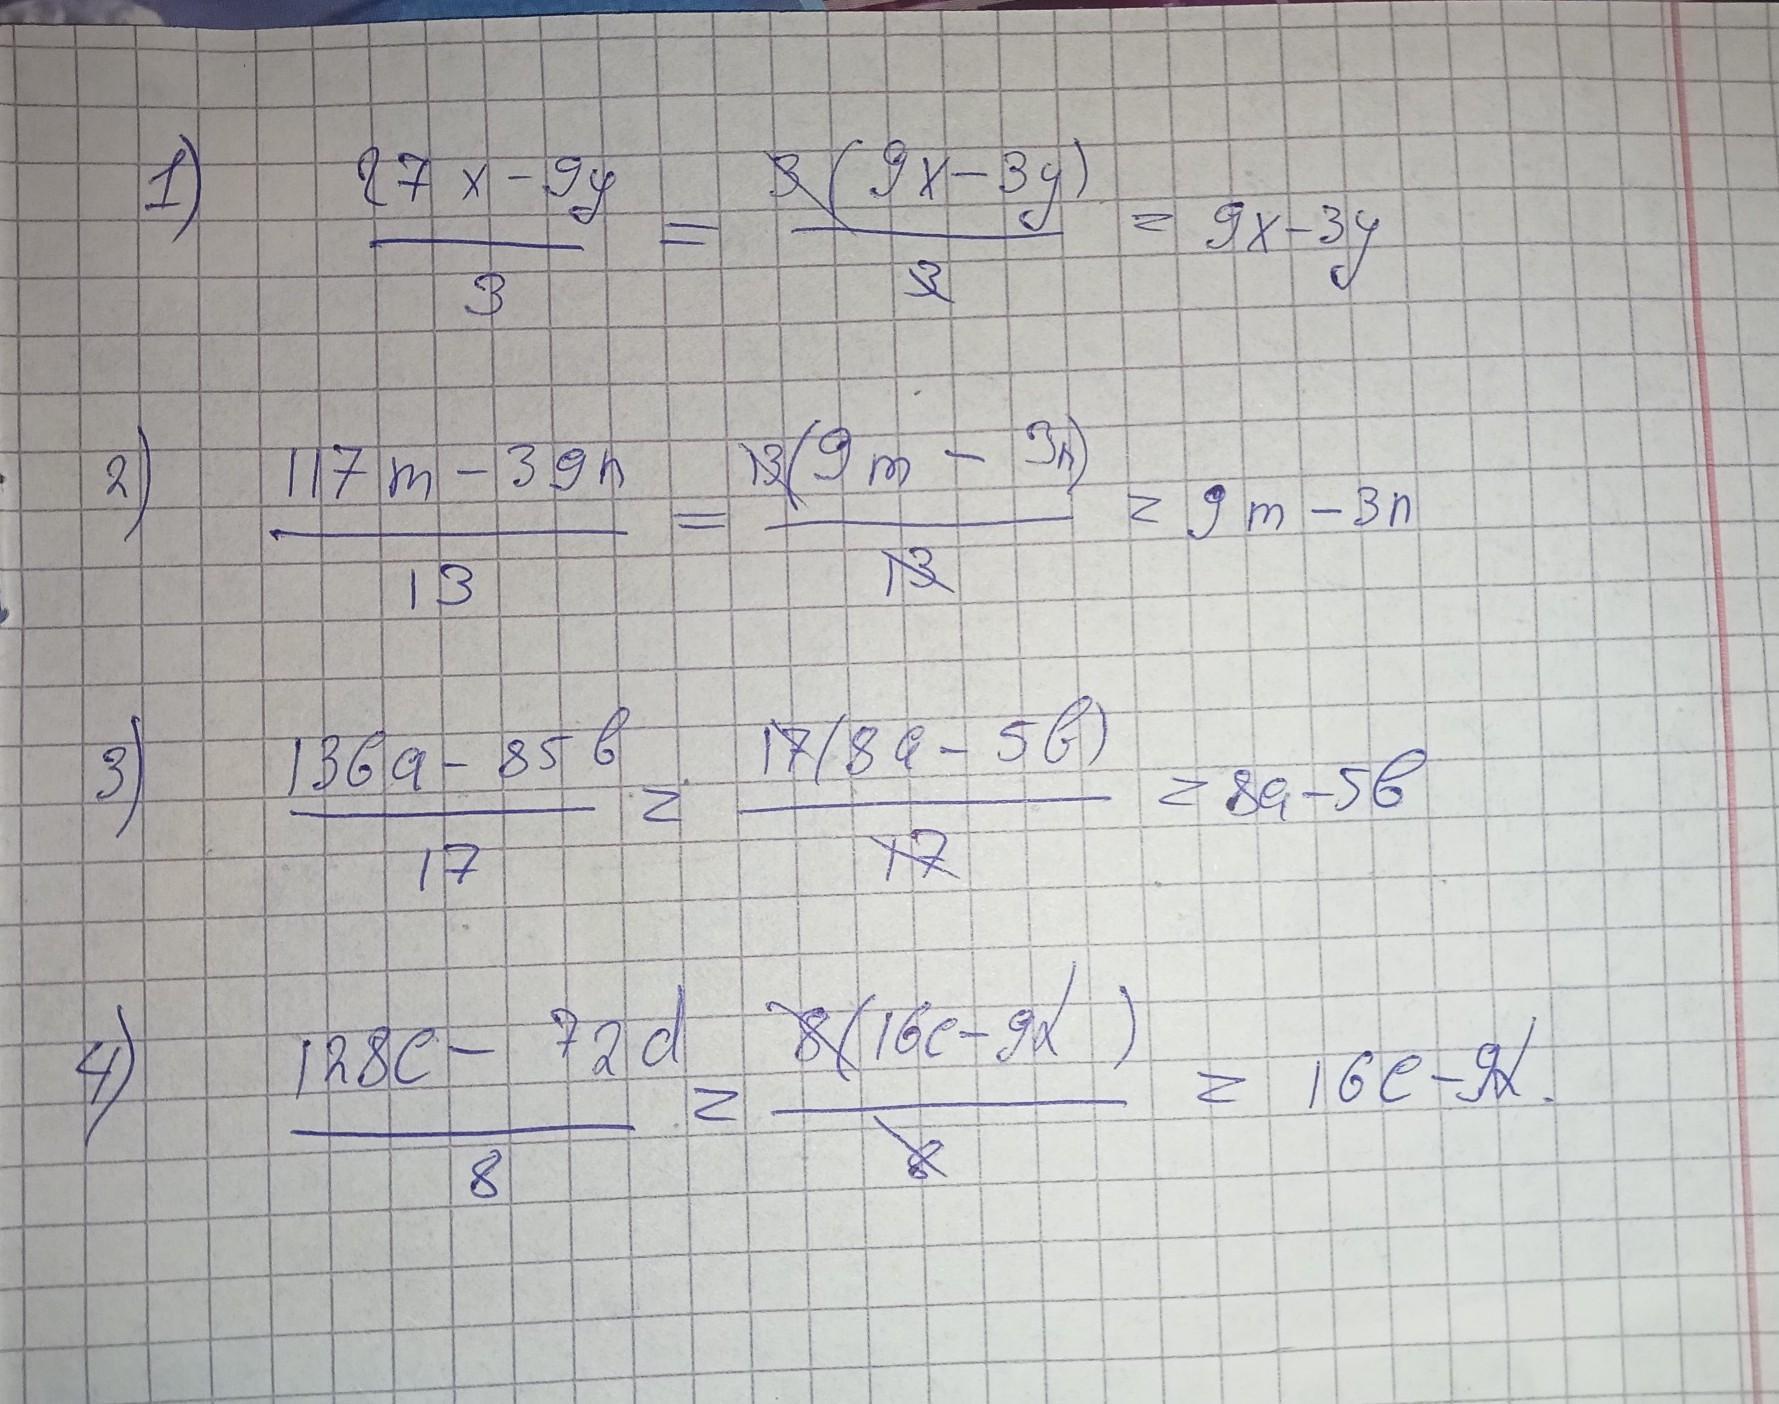 1) (27x - 9y)/3 = 3(9x - 3y)/3 = 9x - 3y
2) (117m - 39n)/13 = 13(9m - 3n)/13 = 9m - 3n
3) (136a - 85b)/17 = 17(8a - 5b)/17 = 8a - 5b
4) (128c - 72d)/8 = 8(16c - 9d)/8 = 16c - 9d.